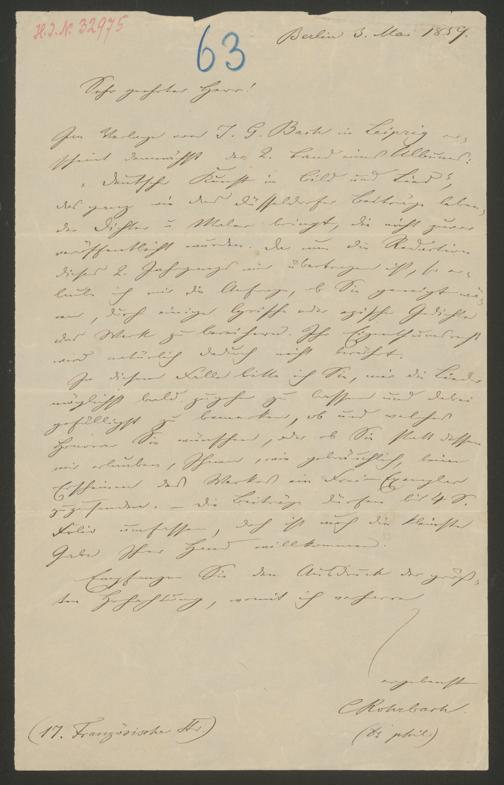 H.I.N. 32975
63
Berlin 3. Mai 1859.
Sehr geehrter Herr!
Im Verlage von J. G. Bach in Leipzig er-
scheint demnächst der 2. Band eines Albums:
„Deutsche Kunst in Bild und Lied",
das ganz wie das Düsseldorfer Beiträge leben-
der Dichter u Maler bringt, die nicht zuvor
veröffentlicht wurden. Da nun die Redaction
dieses 2. Jahrgangs mir übertragen ist, so er-
laube ich mir die Anfrage, ob Sie geneigt wä-
ren, durch einige lyrische oder epische Gedichte
das Werk zu bereichern. Ihr Eigenthumsrecht
wird natürlich dadurch nicht berührt.
In diesem Falle bitte ich Sie, mir die Lieder
möglichst bald zugehn zu lassen und dabei
gefälligst zu bemerken, ob und welches
Honorar Sie wünschen, oder ob Sie statt dessen
mir erlauben, Ihnen, wie gebräuchlich, beim
Erscheinen des Werkes ein Frei-Exemplar
zuzusenden. – Die Beiträge dürfen bis 4 S.
Folio umfassen, doch ist auch die kleinste
Gabe Ihrer Hand willkommen.
Empfangen Sie den Ausdruck der größ-
ten Hochachtung, womit ich verharre
ergebenst
C Rohrbach
(Dr phil.)
(17. Französische Str.)